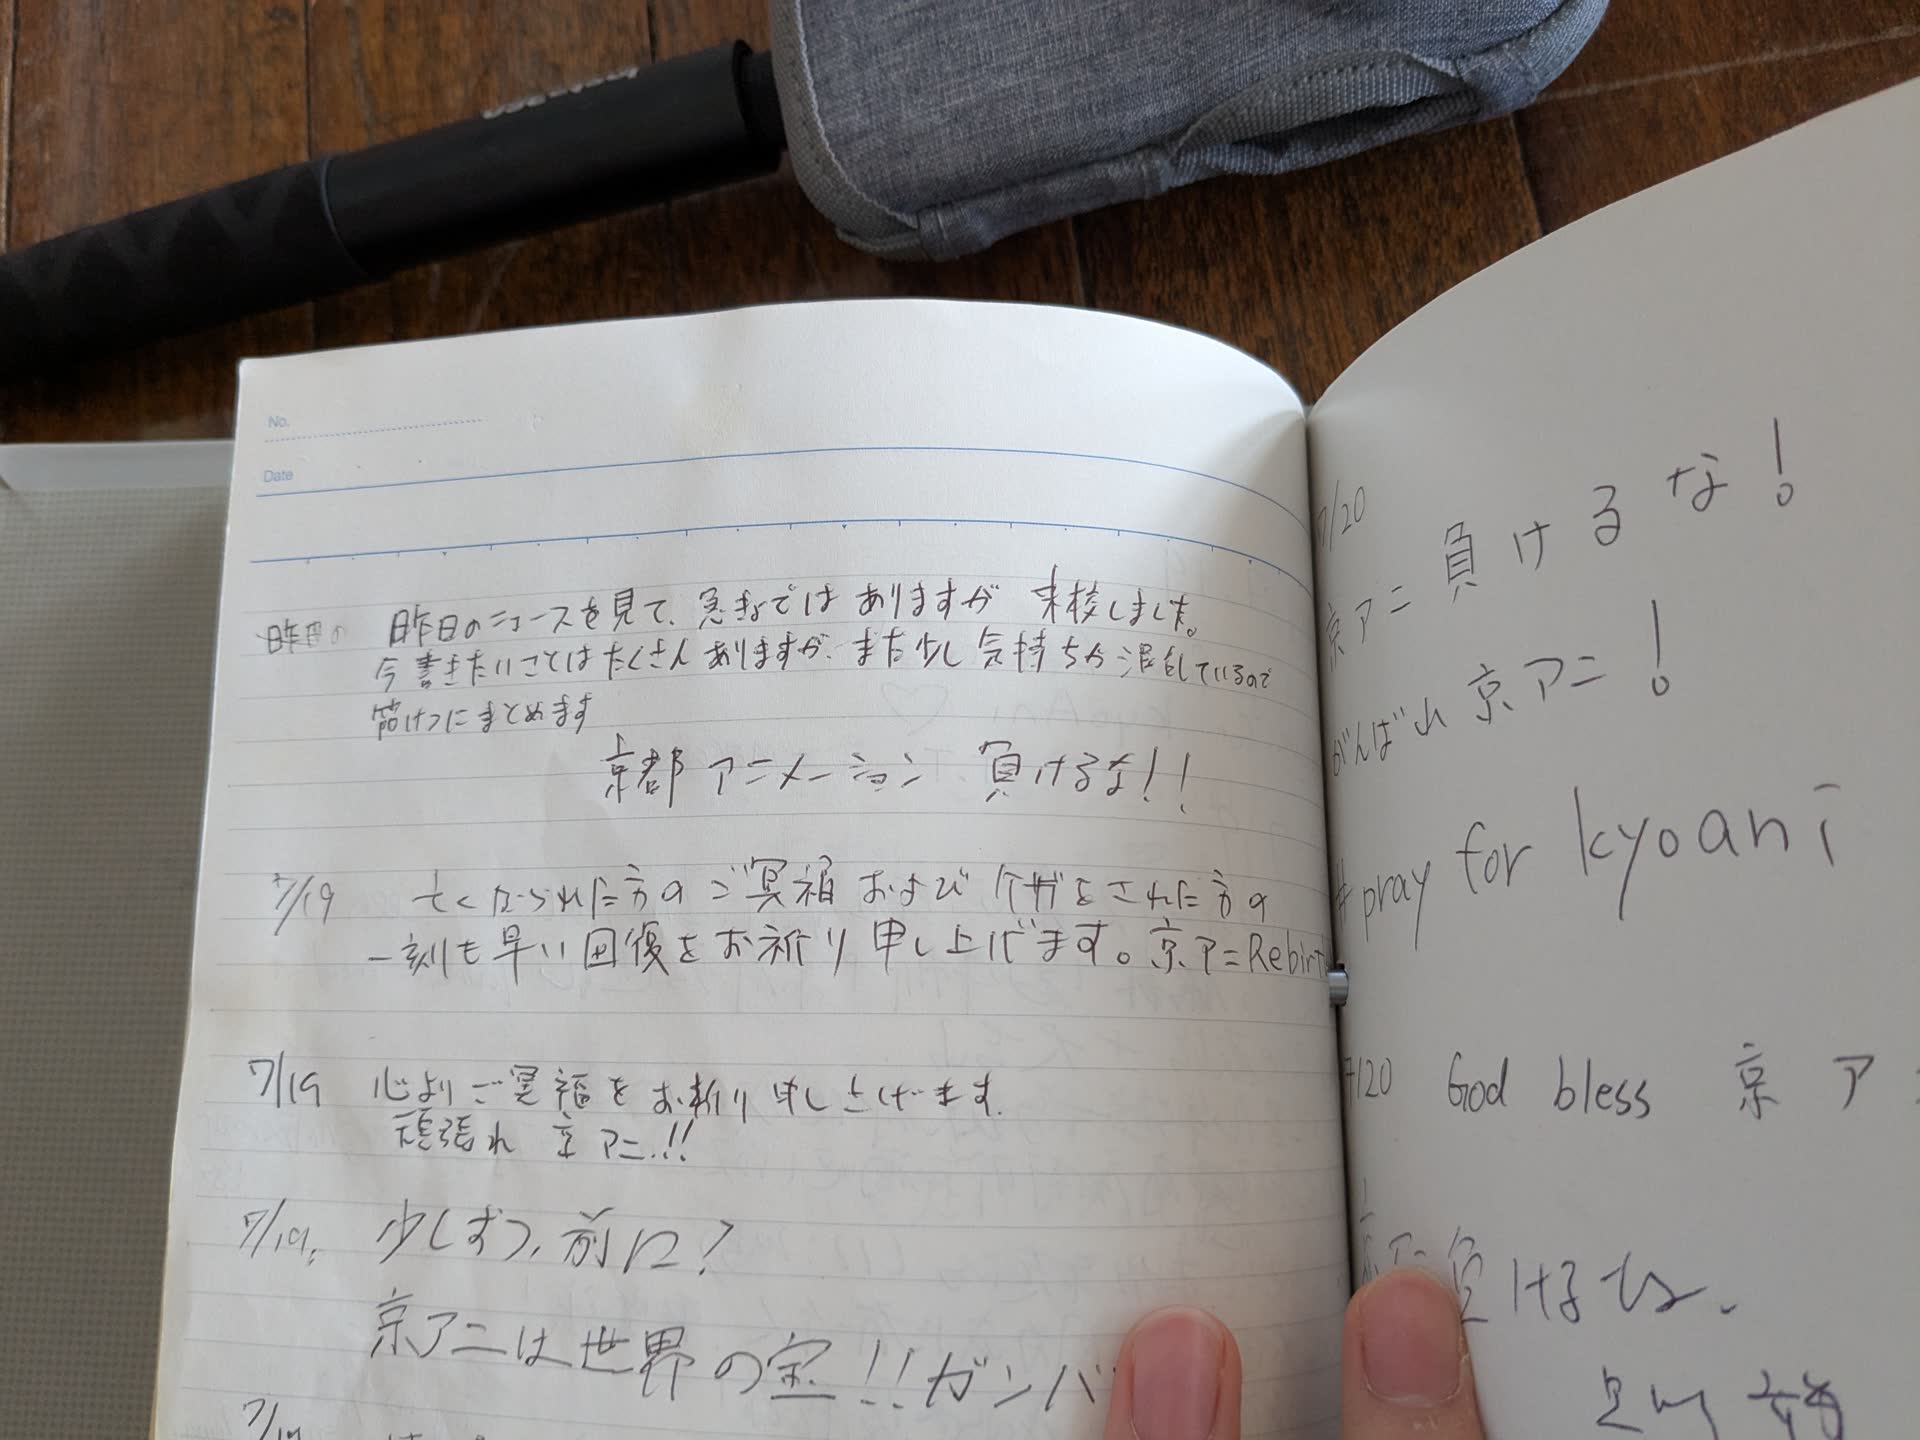 No.
Date
昨日の 昨日のニュースを見て、急きょではありますが 来校しました。
今書きたいことはたくさんありますが、まだ少し気持ちが混乱しているので
箇けつにまとめます
京都アニメーション 負けるな!!
7/19 亡くなられた方のご冥福および ケガをされた方の
一刻も早い回復をお祈り申し上げます。京アニRebirt
7/19 心よりご冥福をお祈り申し上げます.
頑張れ 京アニ!!
7/19. 少しずつ、前に?
京アニは世界の宝!!ガンバ
7/20
京アニ負けるな!
がんばれ京アニ!
#pray for kyoani
7/20 God bless 京ア
京アニ負けるな.